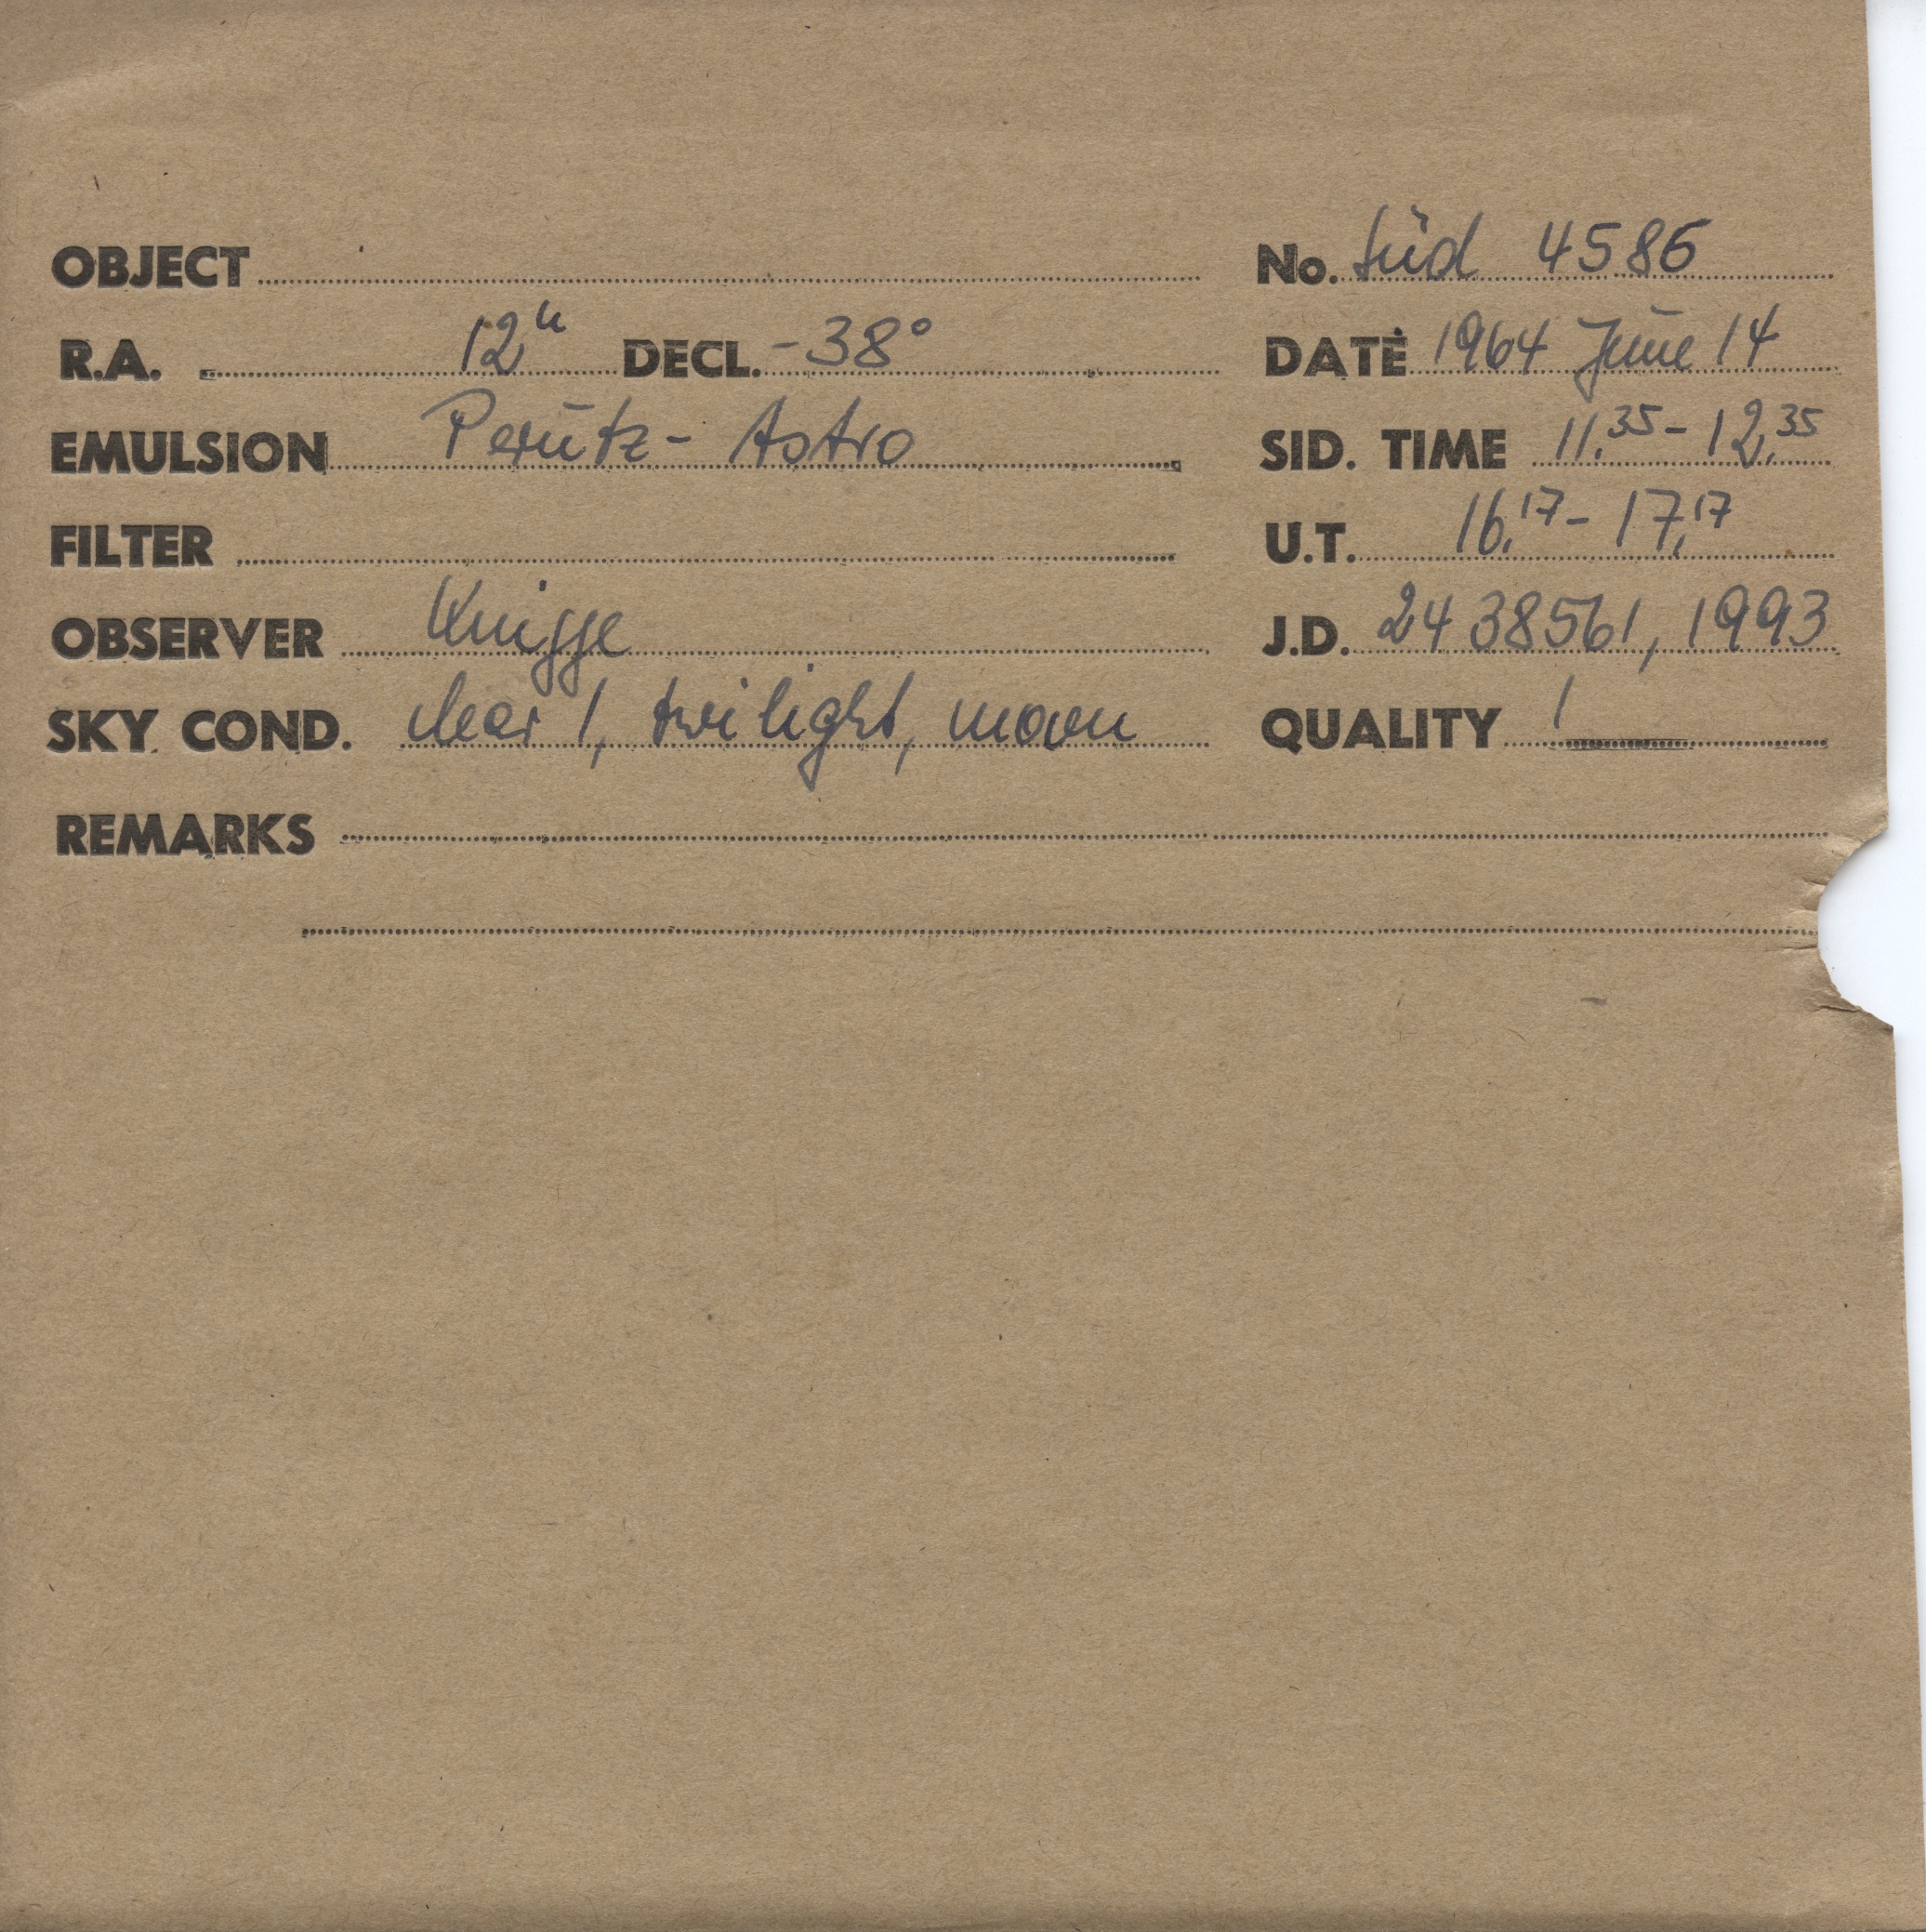 OBJECT
No. Süd 4586
R.A. 12h DECL. -38°
DATE 1964 June 14
EMULSION Perutz - Astro
SID. TIME 11.35 - 12.35
FILTER
U.T. 16.17 - 17.17
OBSERVER Knigge
J.D. 24 38561, 1993
SKY COND. clear 1, twilight, moon
QUALITY 1
REMARKS